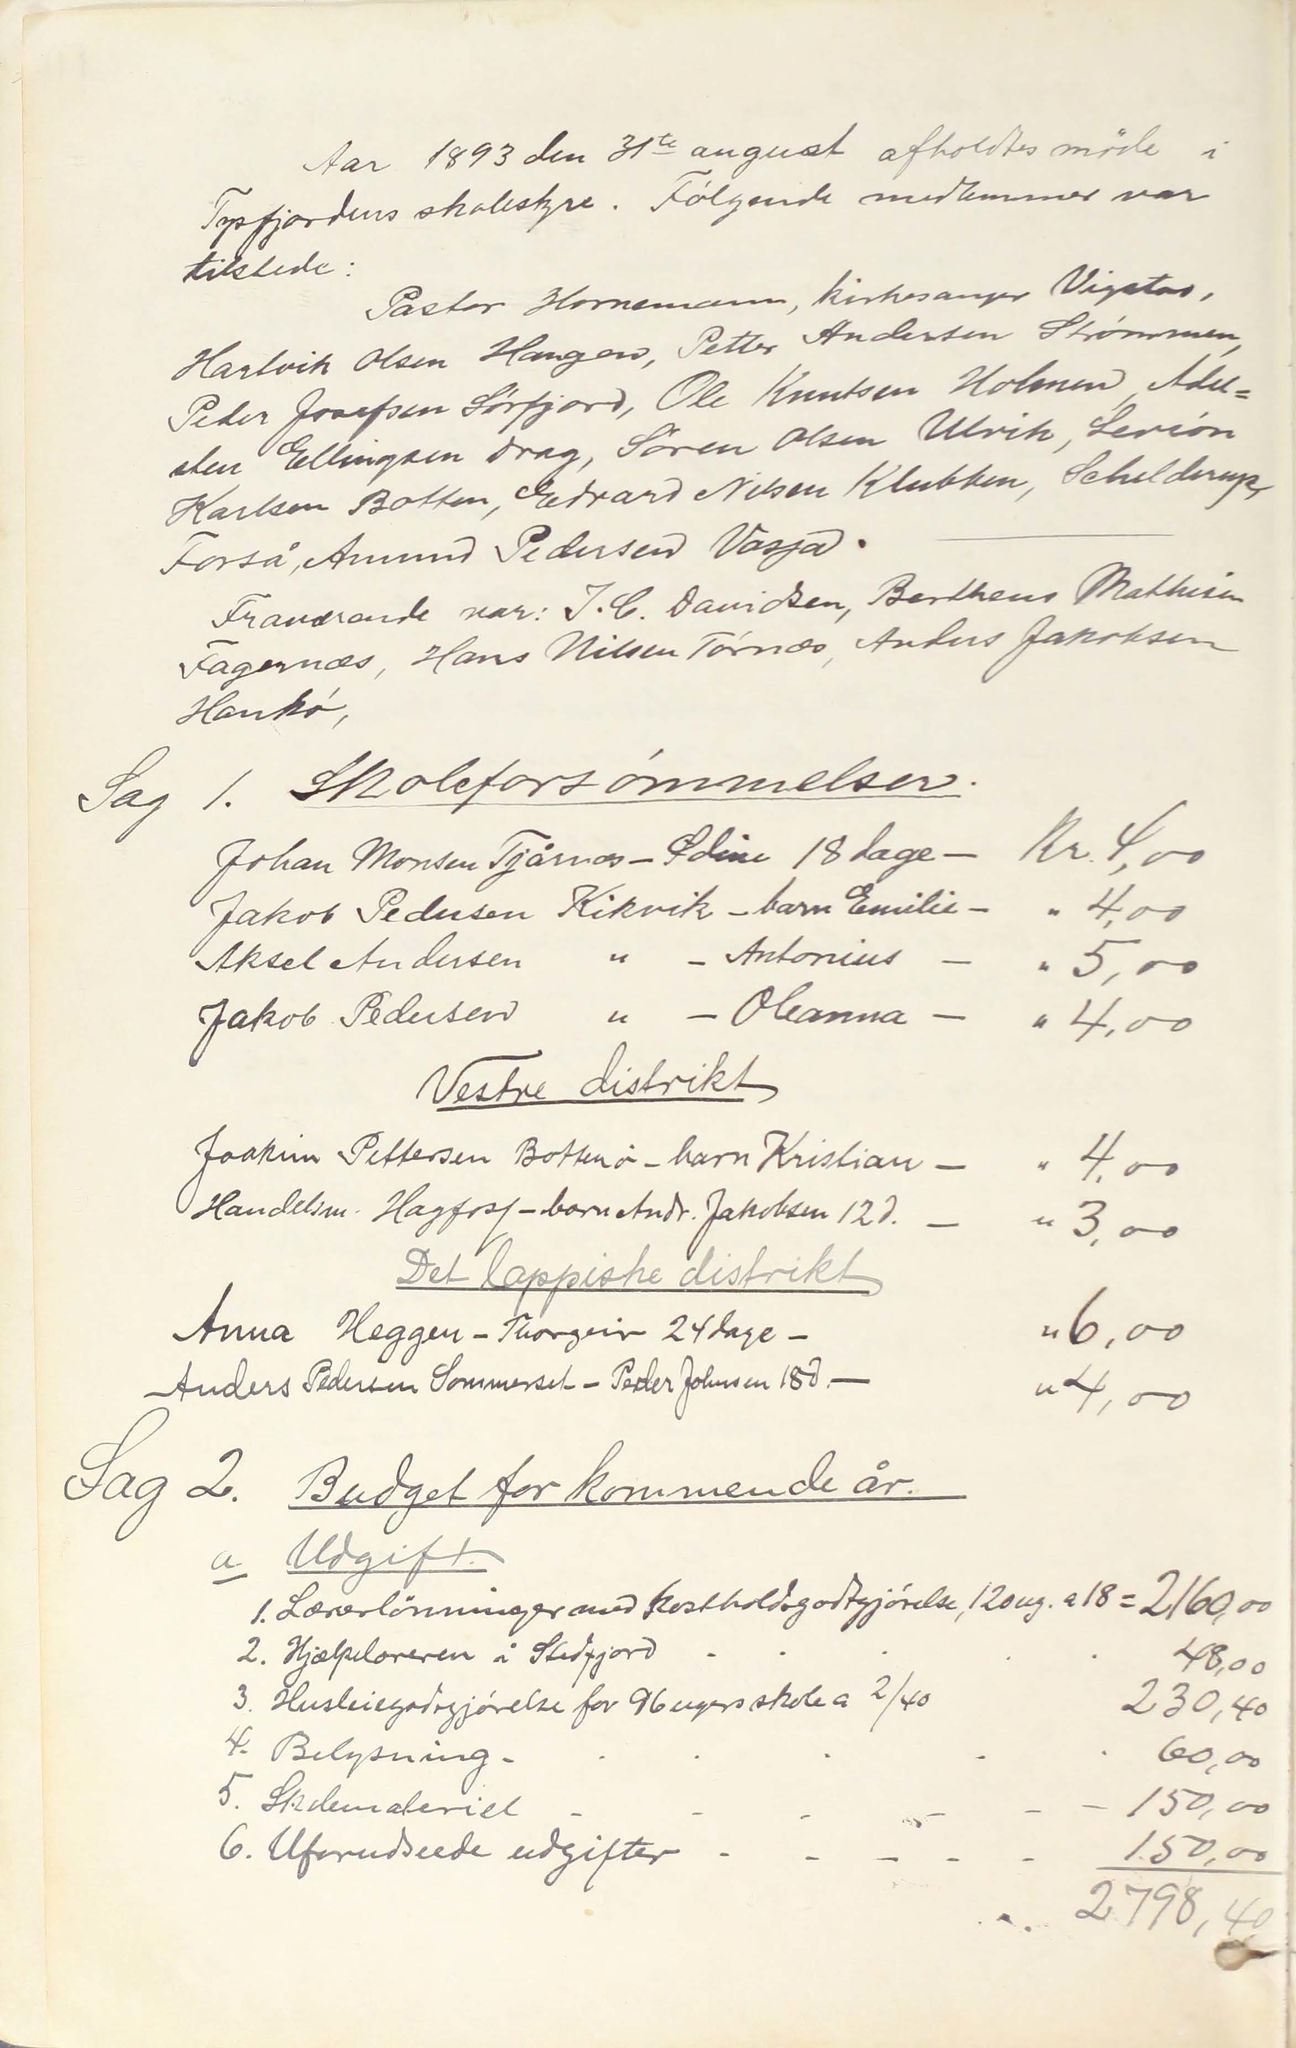 Aar 1893 den 31te august afholdtes møde i
Tysfjordens skolestyre. Følgende medlemmer var
tilstede:
Pastor Hornemann, kirkesanger Vigstad,
Hartvik Olsen Haugen, Petter Andersen Strømmen,
Peder Josefsen Sørfjord, Ole Knutsen Holmen, Adel=
sten Ellingsen Drag, Søren Olsen Ulvik,
Karlsen Botten, Edvard Nilsen Klubben, Schelderup,
Forså, Amund Pedersen Vasja.
Fraværende var: J. C. Davidsen, Bertheus Mathisen
Fagernæs, Hans Nilsen Tørnæs, Anders Jakobsen
Haukø,
Sag 1. Skoleforsømmelser.
Johan Monsen Tjårnæs – Edine 18 dage – Kr. 4,00
Jakob Pedersen Kikvik – barn Emilie – " 4,00
Aksel Andersen " – Antonius – " 5,00
Jakob Pedersen " – Oleanna – " 4,00
Vestre distrikt
Joakim Pettersen Bottenø – barn Kristian – " 4,00
Handelsm. – barn Andr. Jakobsen 12 d. – " 3,00
Det lappiske distrikt
Anna Heggen – Thorgeir 24 dage – " 6,00
Anders Pedersen Sommerset – Peder Johnsen 18 d. – " 4,00
Sag 2. Budget for kommende år.
a Udgift.
1. Lærerlønninger med kostholdsgodtgjørelse, 120 ug. a 18 = 2160,00
2. Hjælpelæreren i Stedfjord . . . . . 48,00
3. Husleiegodtgjørelse for 96 ugers skole a 2/40 230,40
4. Belysning - . . . . . 60,00
5. Skolemateriel - - - - - - 150,00
6. Uforudseede udgifter - - - - - 150,00
2798,40